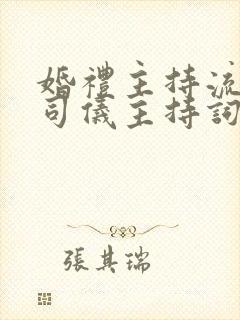 婚禮主持流
司儀主持詞
張其瑞